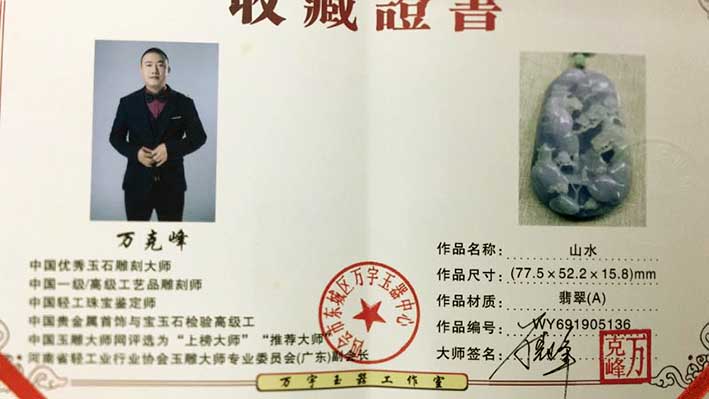 收藏證書
万克峰
中国优秀玉石雕刻大师
中国一级/高级工艺品雕刻师
中国轻工珠宝鉴定师
中国贵金属首饰与宝玉石检验高级工
中国玉雕大师网评选为“上榜大师”“推荐大师”
河南省轻工业行业协会玉雕大师专业委员会(广东)副会长
作品名称: 山水
作品尺寸: (77.5×52.2×15.8)mm
作品材质: 翡翠(A)
作品编号: WY691905136
大师签名: 万克峰
万克峰
市东城区万宇玉器中心
万宇玉器工作室